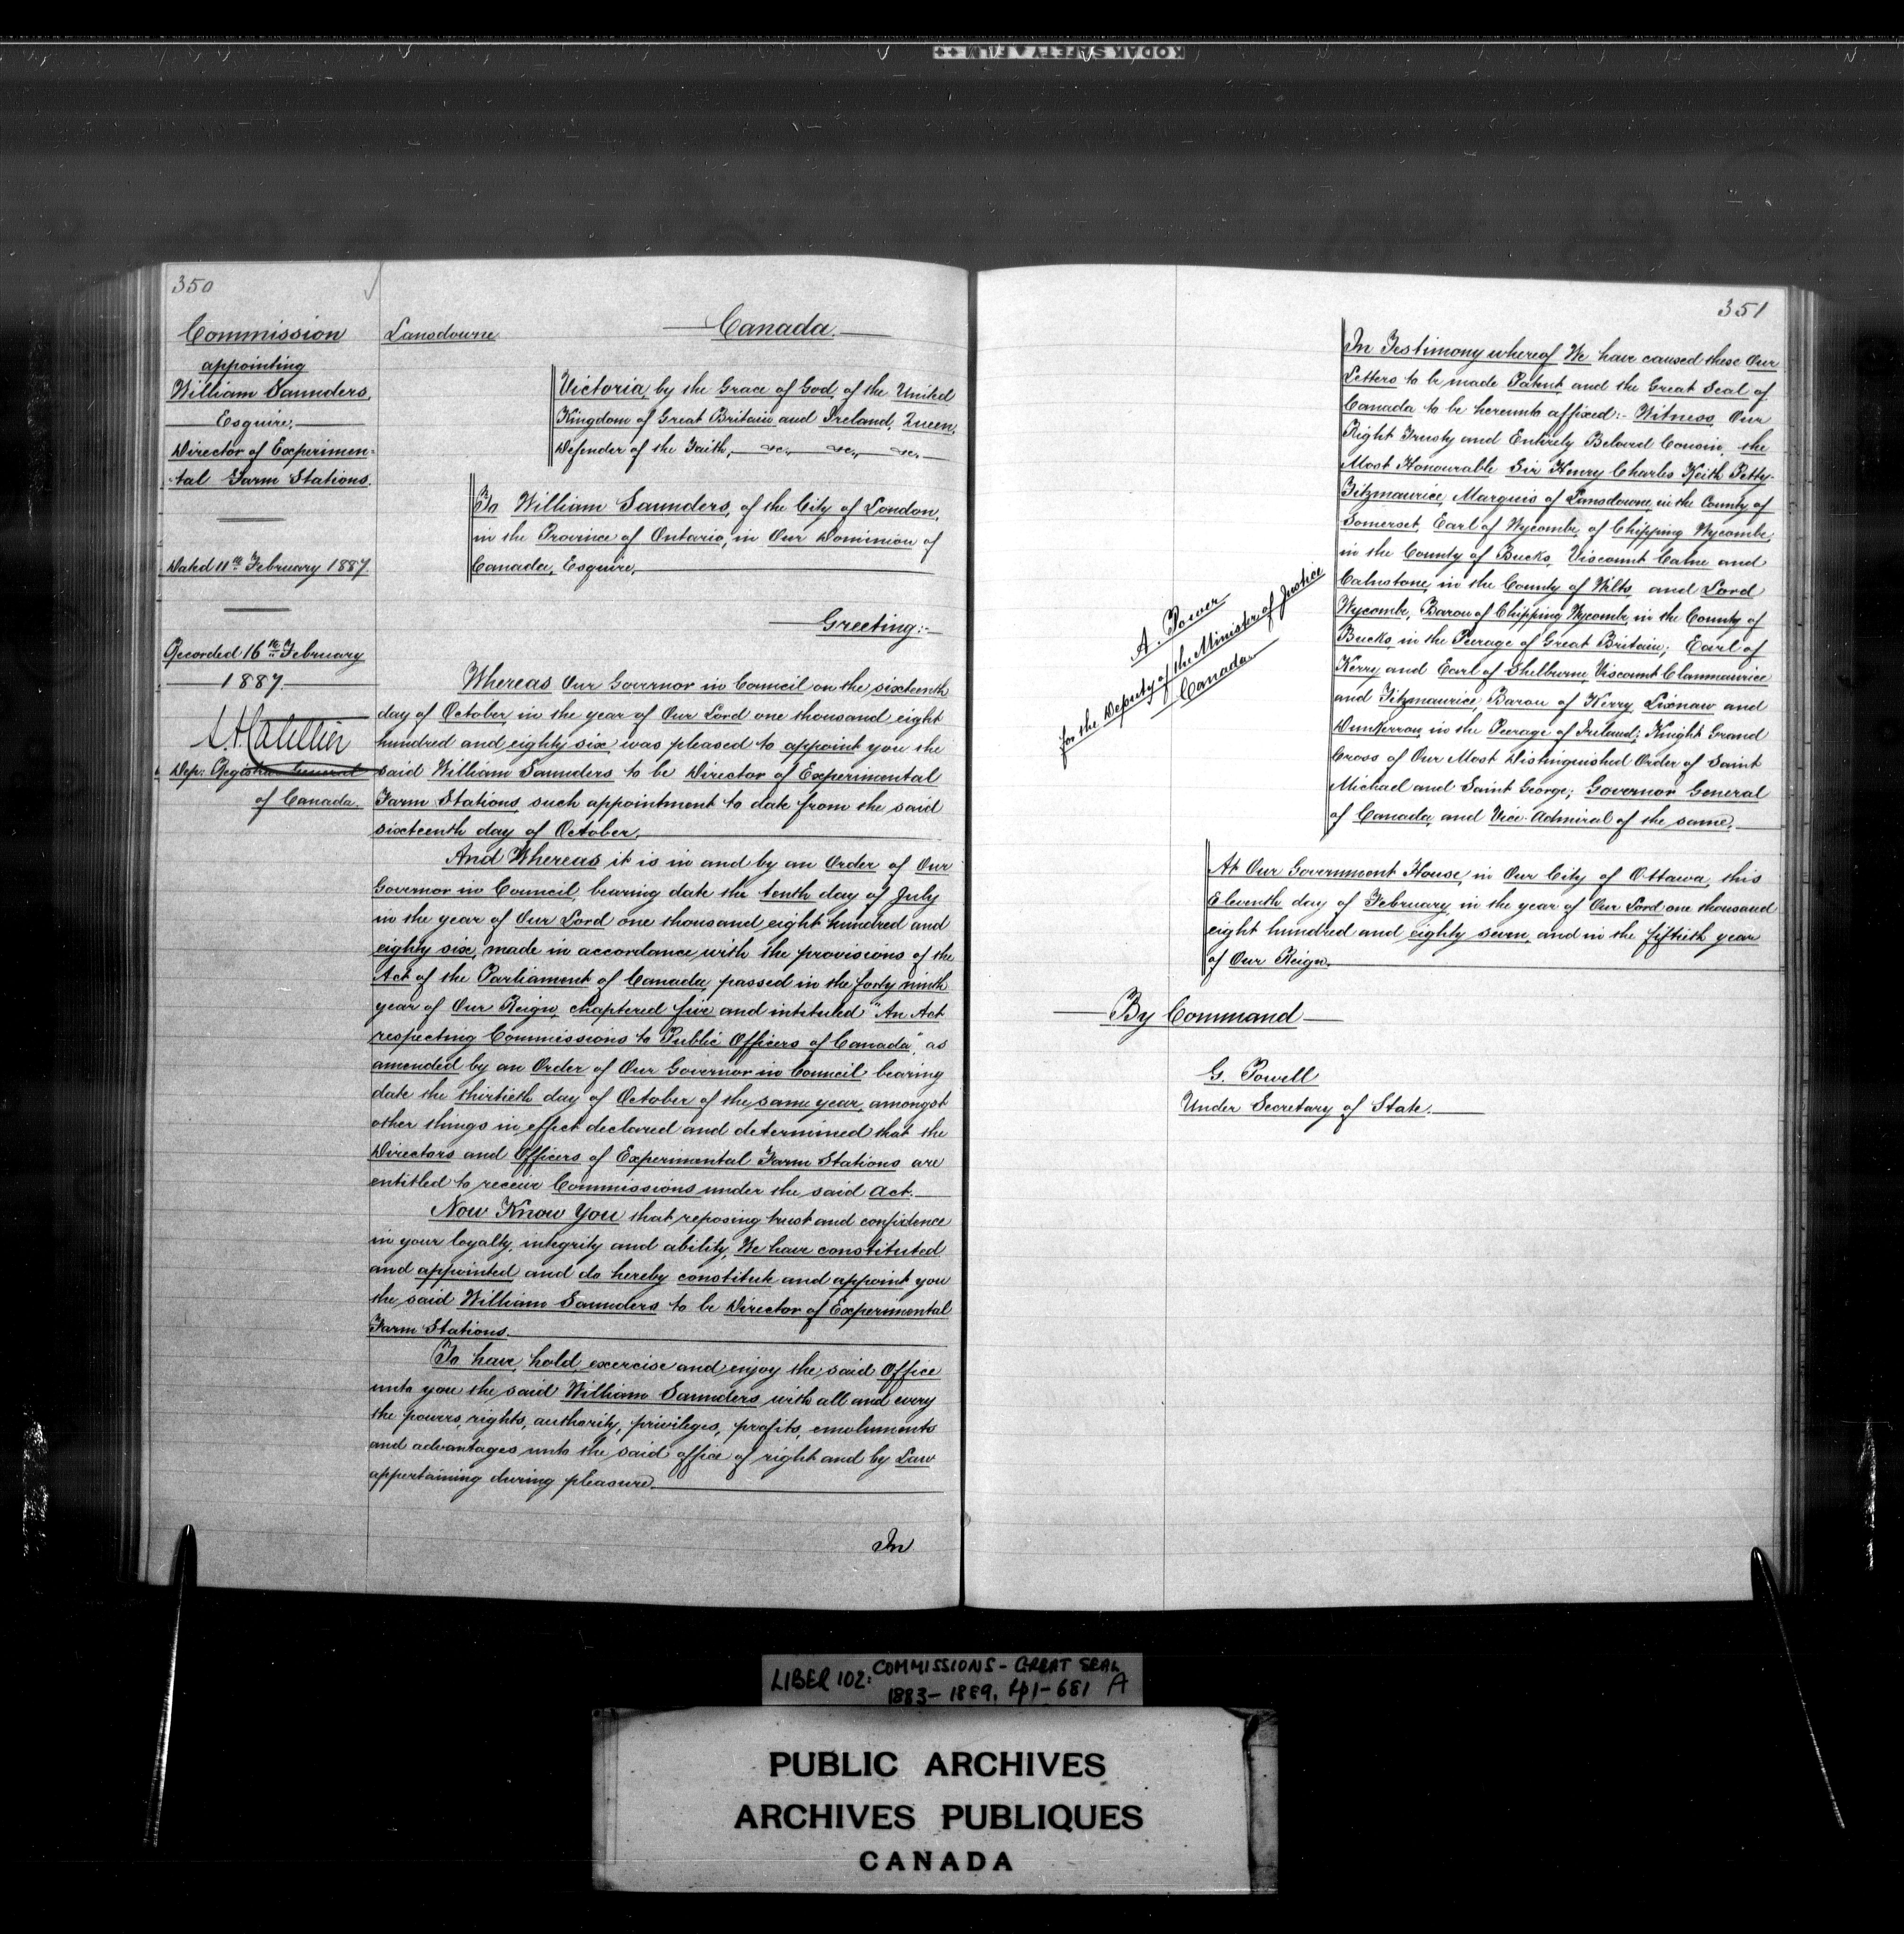 KODAK SAFETY FILM
350
Commission
appointing
William Saunders,
Esquire,
Director of Experimen-
-tal Farm Stations.
Dated 11th February 1887.
Recorded 16th February
1887.
Dep: Registrar General
of Canada.
Lansdowne
Canada.
Victoria, by the Grace of God, of the United
Kingdom of Great Britain and Ireland, Queen,
Defender of the Faith, &c., &c., &c.
To William Saunders, of the City of London,
in the Province of Ontario, in Our Dominion of
Canada, Esquire,
Greeting:-
Whereas Our Governor in Council on the sixteenth
day of October, in the year of Our Lord one thousand eight
hundred and eighty six was pleased to appoint you the
said William Saunders to be Director of Experimental
Farm Stations, such appointment to date from the said
sixteenth day of October.
And Whereas it is in and by an Order of Our
Governor in Council, bearing date the tenth day of July
in the year of Our Lord one thousand eight hundred and
eighty six, made in accordance with the provisions of the
Act of the Parliament of Canada, passed in the forty ninth
year of Our Reign, chaptered five and intituled "An Act
respecting Commissions to Public Officers of Canada", as
amended by an Order of Our Governor in Council bearing
date the thirtieth day of October of the same year, amongst
other things in effect declared and determined that the
Directors and Officers of Experimental Farm Stations are
entitled to receive Commissions under the said Act.
Now Know You that reposing trust and confidence
in your loyalty, integrity and ability, We have constituted
and appointed and do hereby constitute and appoint you
the said William Saunders to be Director of Experimental
Farm Stations.
To have, hold, exercise and enjoy the said Office
unto you the said William Saunders, with all and every
the powers, rights, authority, privileges, profits, emoluments
and advantages unto the said office of right and by Law
appertaining during pleasure.
In
351
A. Power
for the Deputy of the Minister of Justice
Canada
In Testimony whereof We have caused these Our
Letters to be made Patent and the Great Seal of
Canada to be hereunto affixed:- Witness, Our
Right Trusty and Entirely Beloved Cousin, the
Most Honourable Sir Henry Charles Keith Petty-
Fitzmaurice, Marquis of Lansdowne, in the County of
Somerset, Earl of Wycombe, of Chipping Wycombe,
in the County of Bucks, Viscount Calne and
Calnstone, in the County of Wilts, and Lord
Wycombe, Baron of Chipping Wycombe, in the County of
Bucks, in the Peerage of Great Britain; Earl of
Kerry and Earl of Shelburne, Viscount Clanmaurice
and Fitzmaurice, Baron of Kerry, Lixnaw and
Dunkerron, in the Peerage of Ireland; Knight Grand
Cross of Our Most Distinguished Order of Saint
Michael and Saint George; Governor General
of Canada, and Vice-Admiral of the same.
At Our Government House, in Our City of Ottawa, this
Eleventh day of February, in the year of Our Lord one thousand
eight hundred and eighty seven, and in the fiftieth year
of Our Reign.
By Command
G. Powell
Under Secretary of State.
LIBER 102: COMMISSIONS - GREAT SEAL
1883-1889, pp1-681 A
PUBLIC ARCHIVES
ARCHIVES PUBLIQUES
CANADA